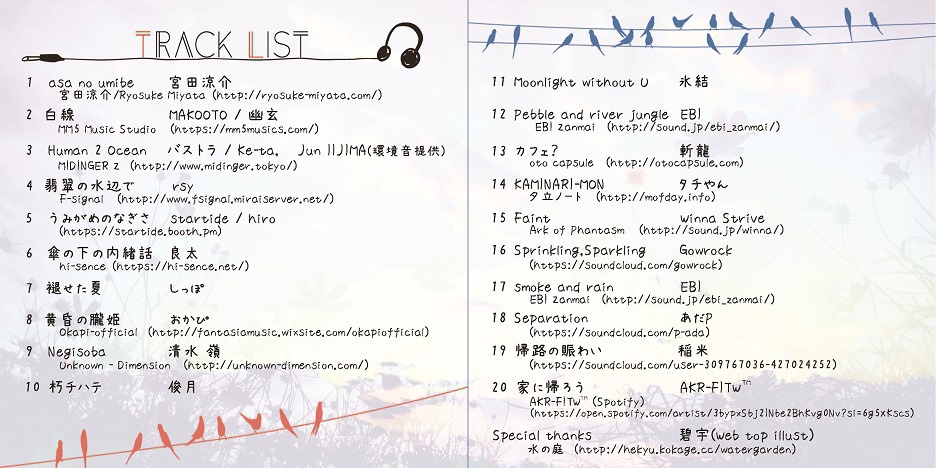 TRACK LIST
1 asa no umibe 宮田涼介
宮田涼介/Ryosuke Miyata (http://ryosuke-miyata.com/)
2 白線 MAKOOTO / 幽玄
MM5 Music Studio (https://mm5musics.com/)
3 Human 2 Ocean バストラ / Ke-ta. Jun IIJIMA(環境音提供)
MIDINGER Z (http://www.midinger.tokyo/)
4 翡翠の水辺で rsy
F-signal (http://www.fsignal.miraiserver.net/)
5 うみがめのなぎさ startide / hiro
(https://startide.booth.pm)
6 傘の下の内緒話 良太
hi-sence (https://hi-sence.net/)
7 褪せた夏 しっぽ
8 黄昏の朧姫 おかぴ
Okapi-official (http://fantasiamusic.wixsite.com/okapiofficial)
9 Negisoba 清水 嶺
Unknown - Dimension (http://unknown-dimension.com/)
10 朽チハテ 俊月
11 Moonlight without U 氷結
12 Pebble and river jungle EBI
EBI zanmai (http://sound.jp/ebi_zanmai/)
13 カフェ? 斬龍
oto capsule (http://otocapsule.com)
14 KAMINARI-MON タチやん
夕立ノート (http://mofday.info)
15 Faint winna Strive
Ark of Phantasm (http://sound.jp/winna/)
16 Sprinkling,Sparkling Gowrock
(https://soundcloud.com/gowrock)
17 smoke and rain EBI
EBI zanmai (http://sound.jp/ebi_zanmai/)
18 Separation あだP
(https://soundcloud.com/p-ada)
19 帰路の賑わい 稲米
(https://soundcloud.com/user-309767036-427024252)
20 家に帰ろう AKR-FITW™
AKR-FITW™ (Spotify)
(https://open.spotify.com/artist/3bypxSbj2lNbe2BhKvg0Nv?si=6g5xKscs)
Special thanks 碧宇(web top illust)
水の庭 (http://hekyu.kokage.cc/watergarden)